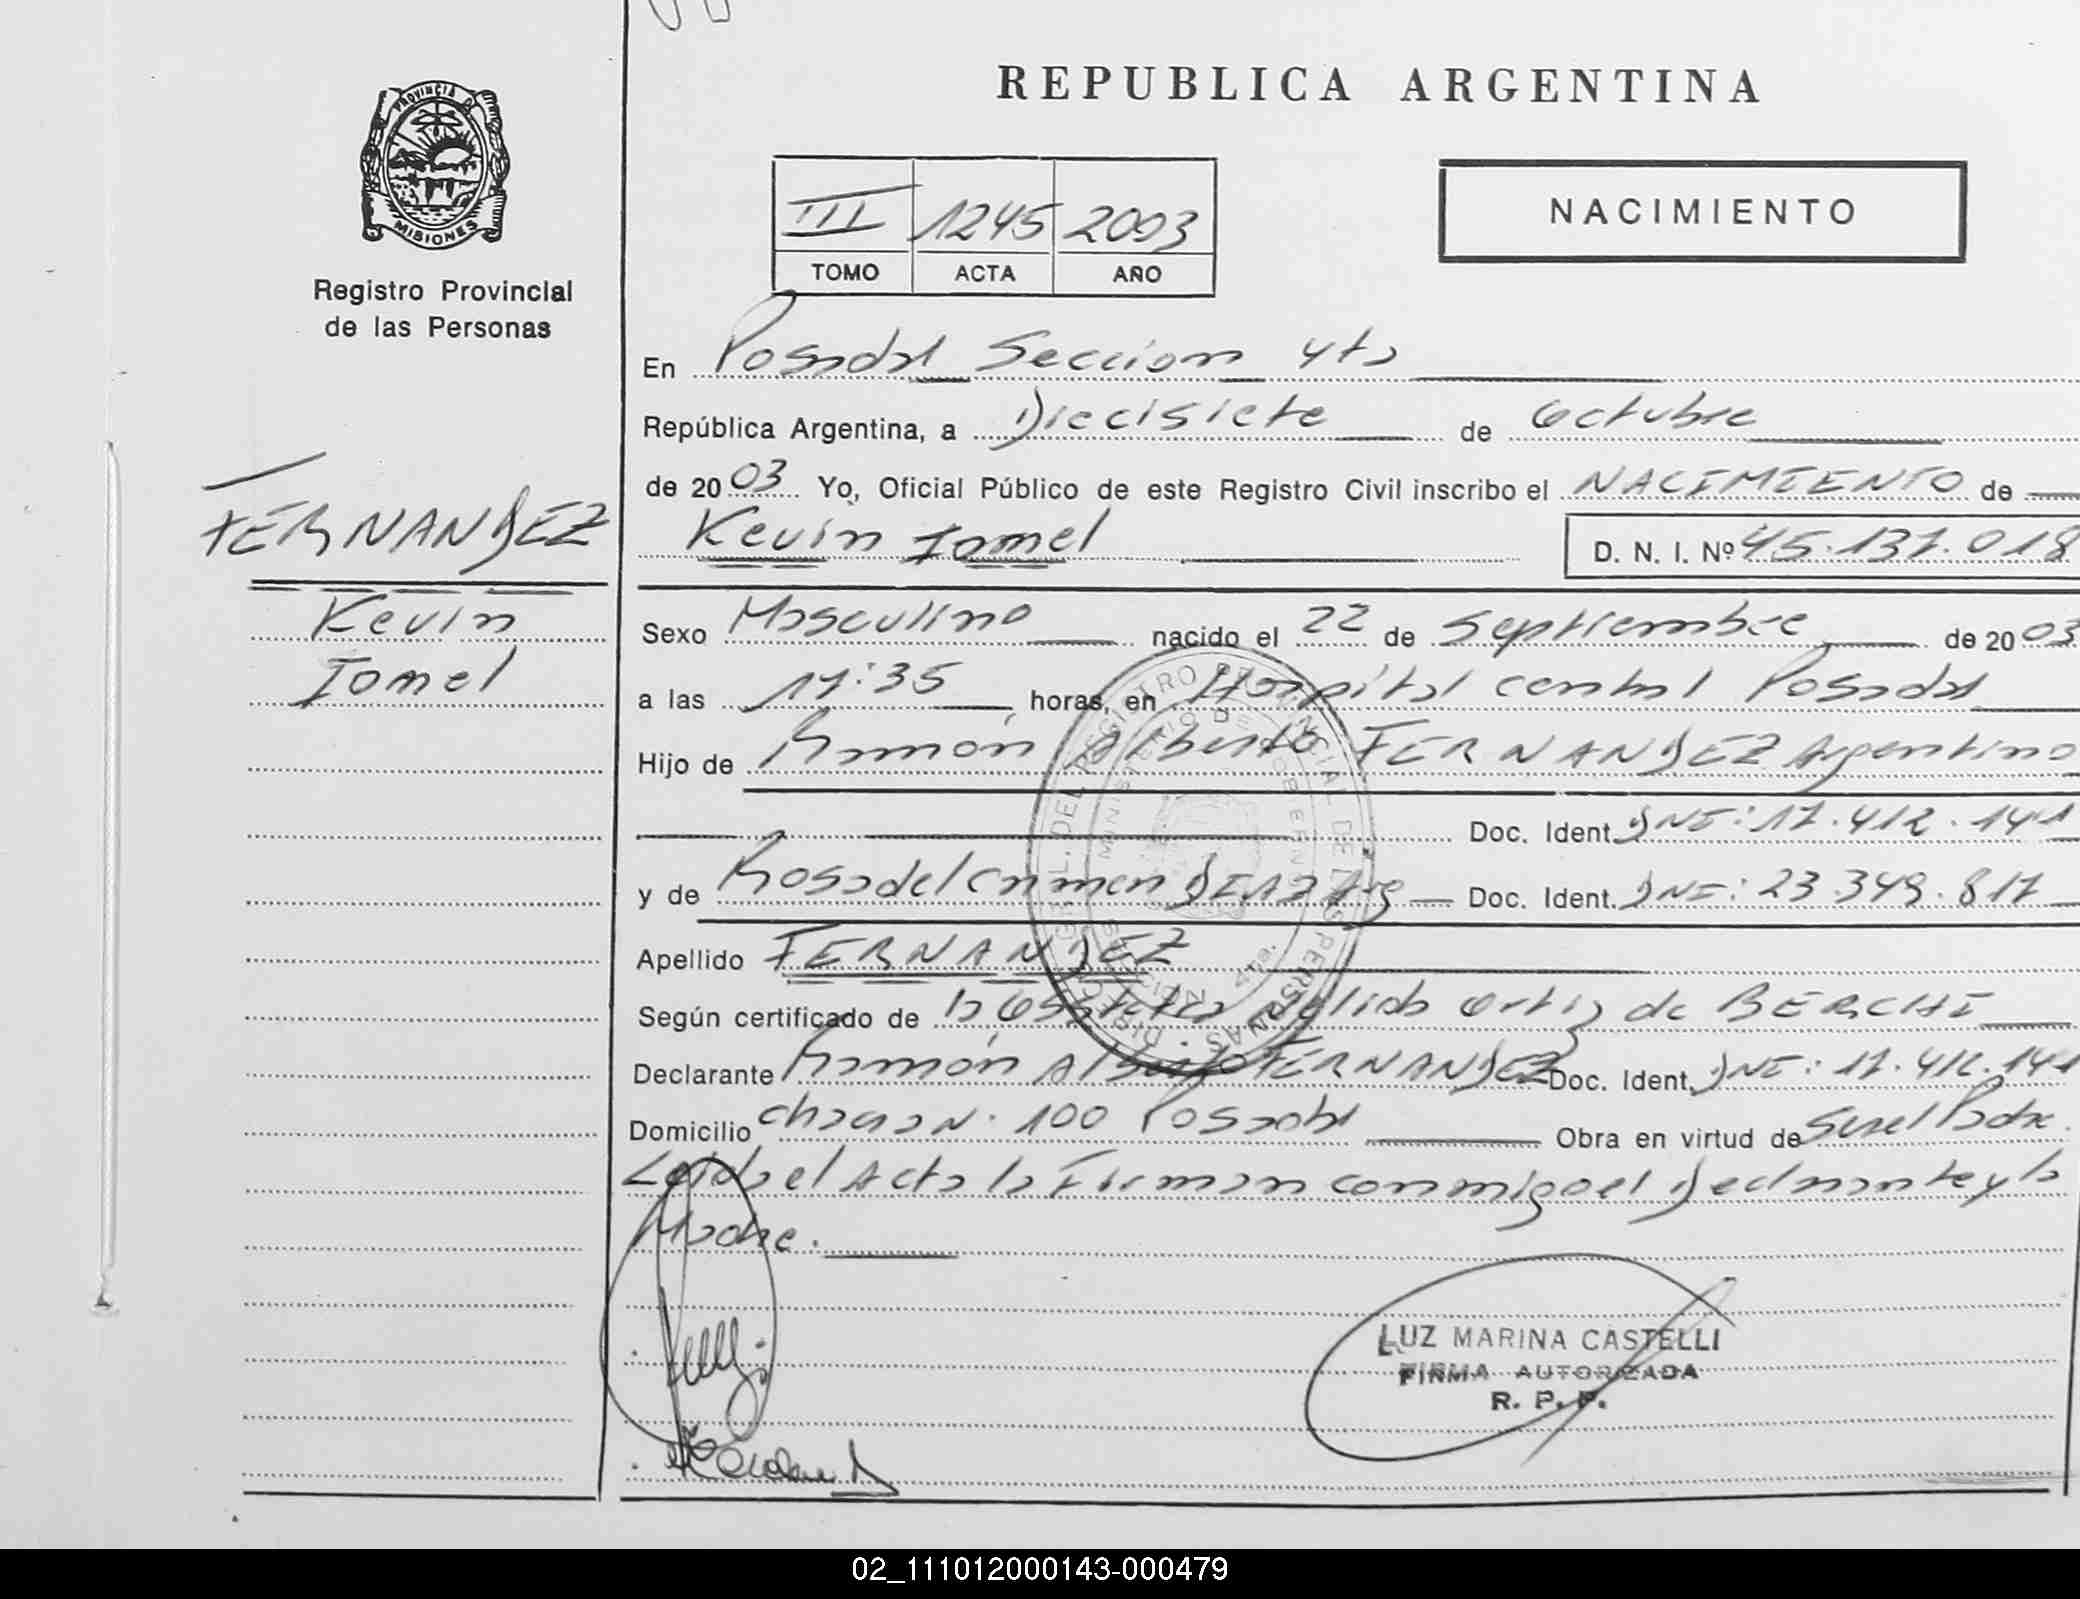 REPUBLICA ARGENTINA
PROVINCIA DE
MISIONES
Registro Provincial
de las Personas
III 1245 2003
TOMO ACTA AÑO
NACIMIENTO
En Posadas Seccion 4ta
República Argentina, a Diecisiete de Octubre
de 20 03 Yo, Oficial Público de este Registro Civil inscribo el NACIMIENTO de
Kevin Iomel D. N. I. Nº 45.137.018
FERNANDEZ
Kevin
Iomel
Sexo Masculino nacido el 22 de Septiembre de 20 03
a las 17:35 horas, en Hospital central Posadas
Hijo de Ramón Alberto FERNANDEZ Argentino
Doc. Ident. DNI: 17.412.141
y de Rosa del Carmen DIAZ Arg Doc. Ident. DNI: 23.349.817
Apellido FERNANDEZ
Según certificado de la Obstetra Ortiz de BERCHI
Declarante Ramón Alberto FERNANDEZ Doc. Ident. DNI: 17.412.141
Domicilio Chacra N. 100 Posadas Obra en virtud de Ser el Padre.
Leida el Acta la Firman conmigo el Declarante y la
Madre.
LUZ MARINA CASTELLI
FIRMA AUTORIZADA
R. P. P.
02_111012000143-000479